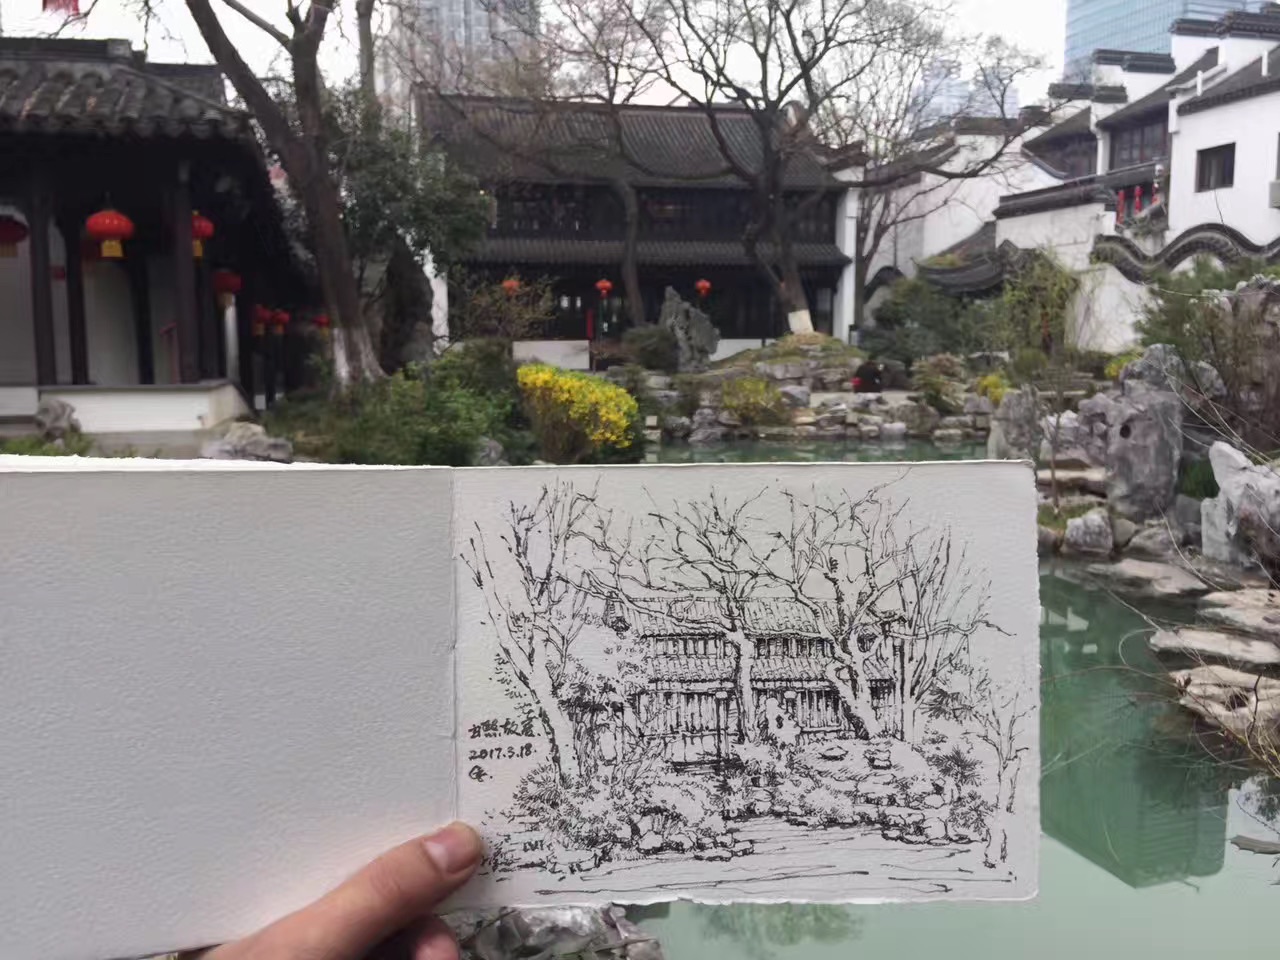 甘熙故居.
2017.3.18.